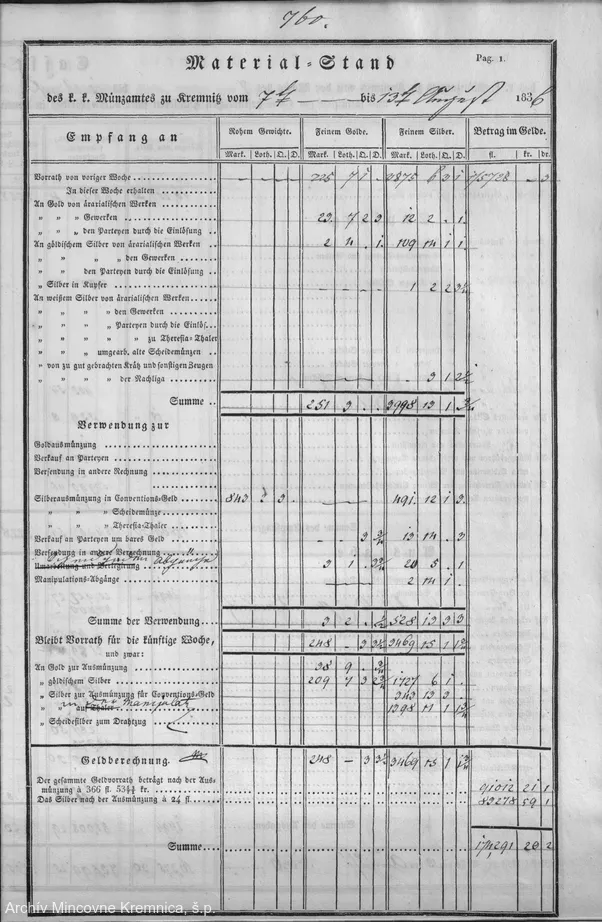 760.
Material-Stand
Pag. 1.
des k. k. Münzamtes zu Kremnitz vom 7t — bis 13t August 1836
Empfang an Rohem Gewichte. Feinem Golde. Feinem Silber. Betrag im Gelde.
Mark. Loth. Q. D. Mark. Loth. Q. D. Mark. Loth. Q. D. fl. kr. dr.
Vorrath von voriger Woche 225 7 1 . 3875 6 3 1 75728 — 3
In dieser Woche erhalten
An Gold von ärarialischen Werken
„ „ „ Gewerken 23. 7 2 3. 12 2 . 1
„ „ „ den Parteyen durch die Einlösung
An göldischem Silber von ärarialischen Werken 2 4 . 1. 109 14 1 1
„ „ „ den Gewerken
„ „ den Parteyen durch die Einlösung
„ Silber in Kupfer 1 2 2
An weißem Silber von ärarialischen Werken
„ „ „ „ den Gewerken
„ „ „ „ Parteyen durch die Einlös.
„ „ „ „ zu Theresia-Thaler
„ „ „ umgearb. alte Scheidemünzen
„ von zu gut gebrachten Kräh und sonstigen Zeugen
„ „ „ „ der Nachliga 3 1
Summe 251 3 . . 3998 13 1
Verwendung zur
Goldausmünzung
Verkauf an Parteyen
Versendung in andere Rechnung
Silberausmünzung in Conventions-Geld 843 3 3 . 491. 12 1 3.
„ „ „ Scheidemünze
„ „ „ Theresia-Thaler
Verkauf an Parteyen um bares Geld 3 13 14 . 3
Versendung in andere Verrechnung
Abgänge
Umarbeitung und Vertiegirung 3 1 . 20 5 . 1
Manipulations-Abgänge 2 14 1 .
Summe der Verwendung 3 2 . 528 13 3 3
Bleibt Vorrath für die künftige Woche, 248 — 3 3469 15 1
und zwar:
An Gold zur Ausmünzung 38 9 .
„ göldischem Silber 209 7 3 1727 6 1 .
„ Silber zur Ausmünzung für Conventions-Geld 343 13 3 .
„ „ auf Thaler 1398 11 1
„ Scheidesilber zum Drahtzug
Geldberechnung. 248 — 3 3469 15 1
Der gesammte Geldvorrath beträgt nach der Ausmünzung à 366 fl. 53¼ kr. 91012 21 1
Das Silber nach der Ausmünzung à 24 fl. 83278 59 1
Summe 174,291 20 2
Archív Mincovne Kremnica, š.p.